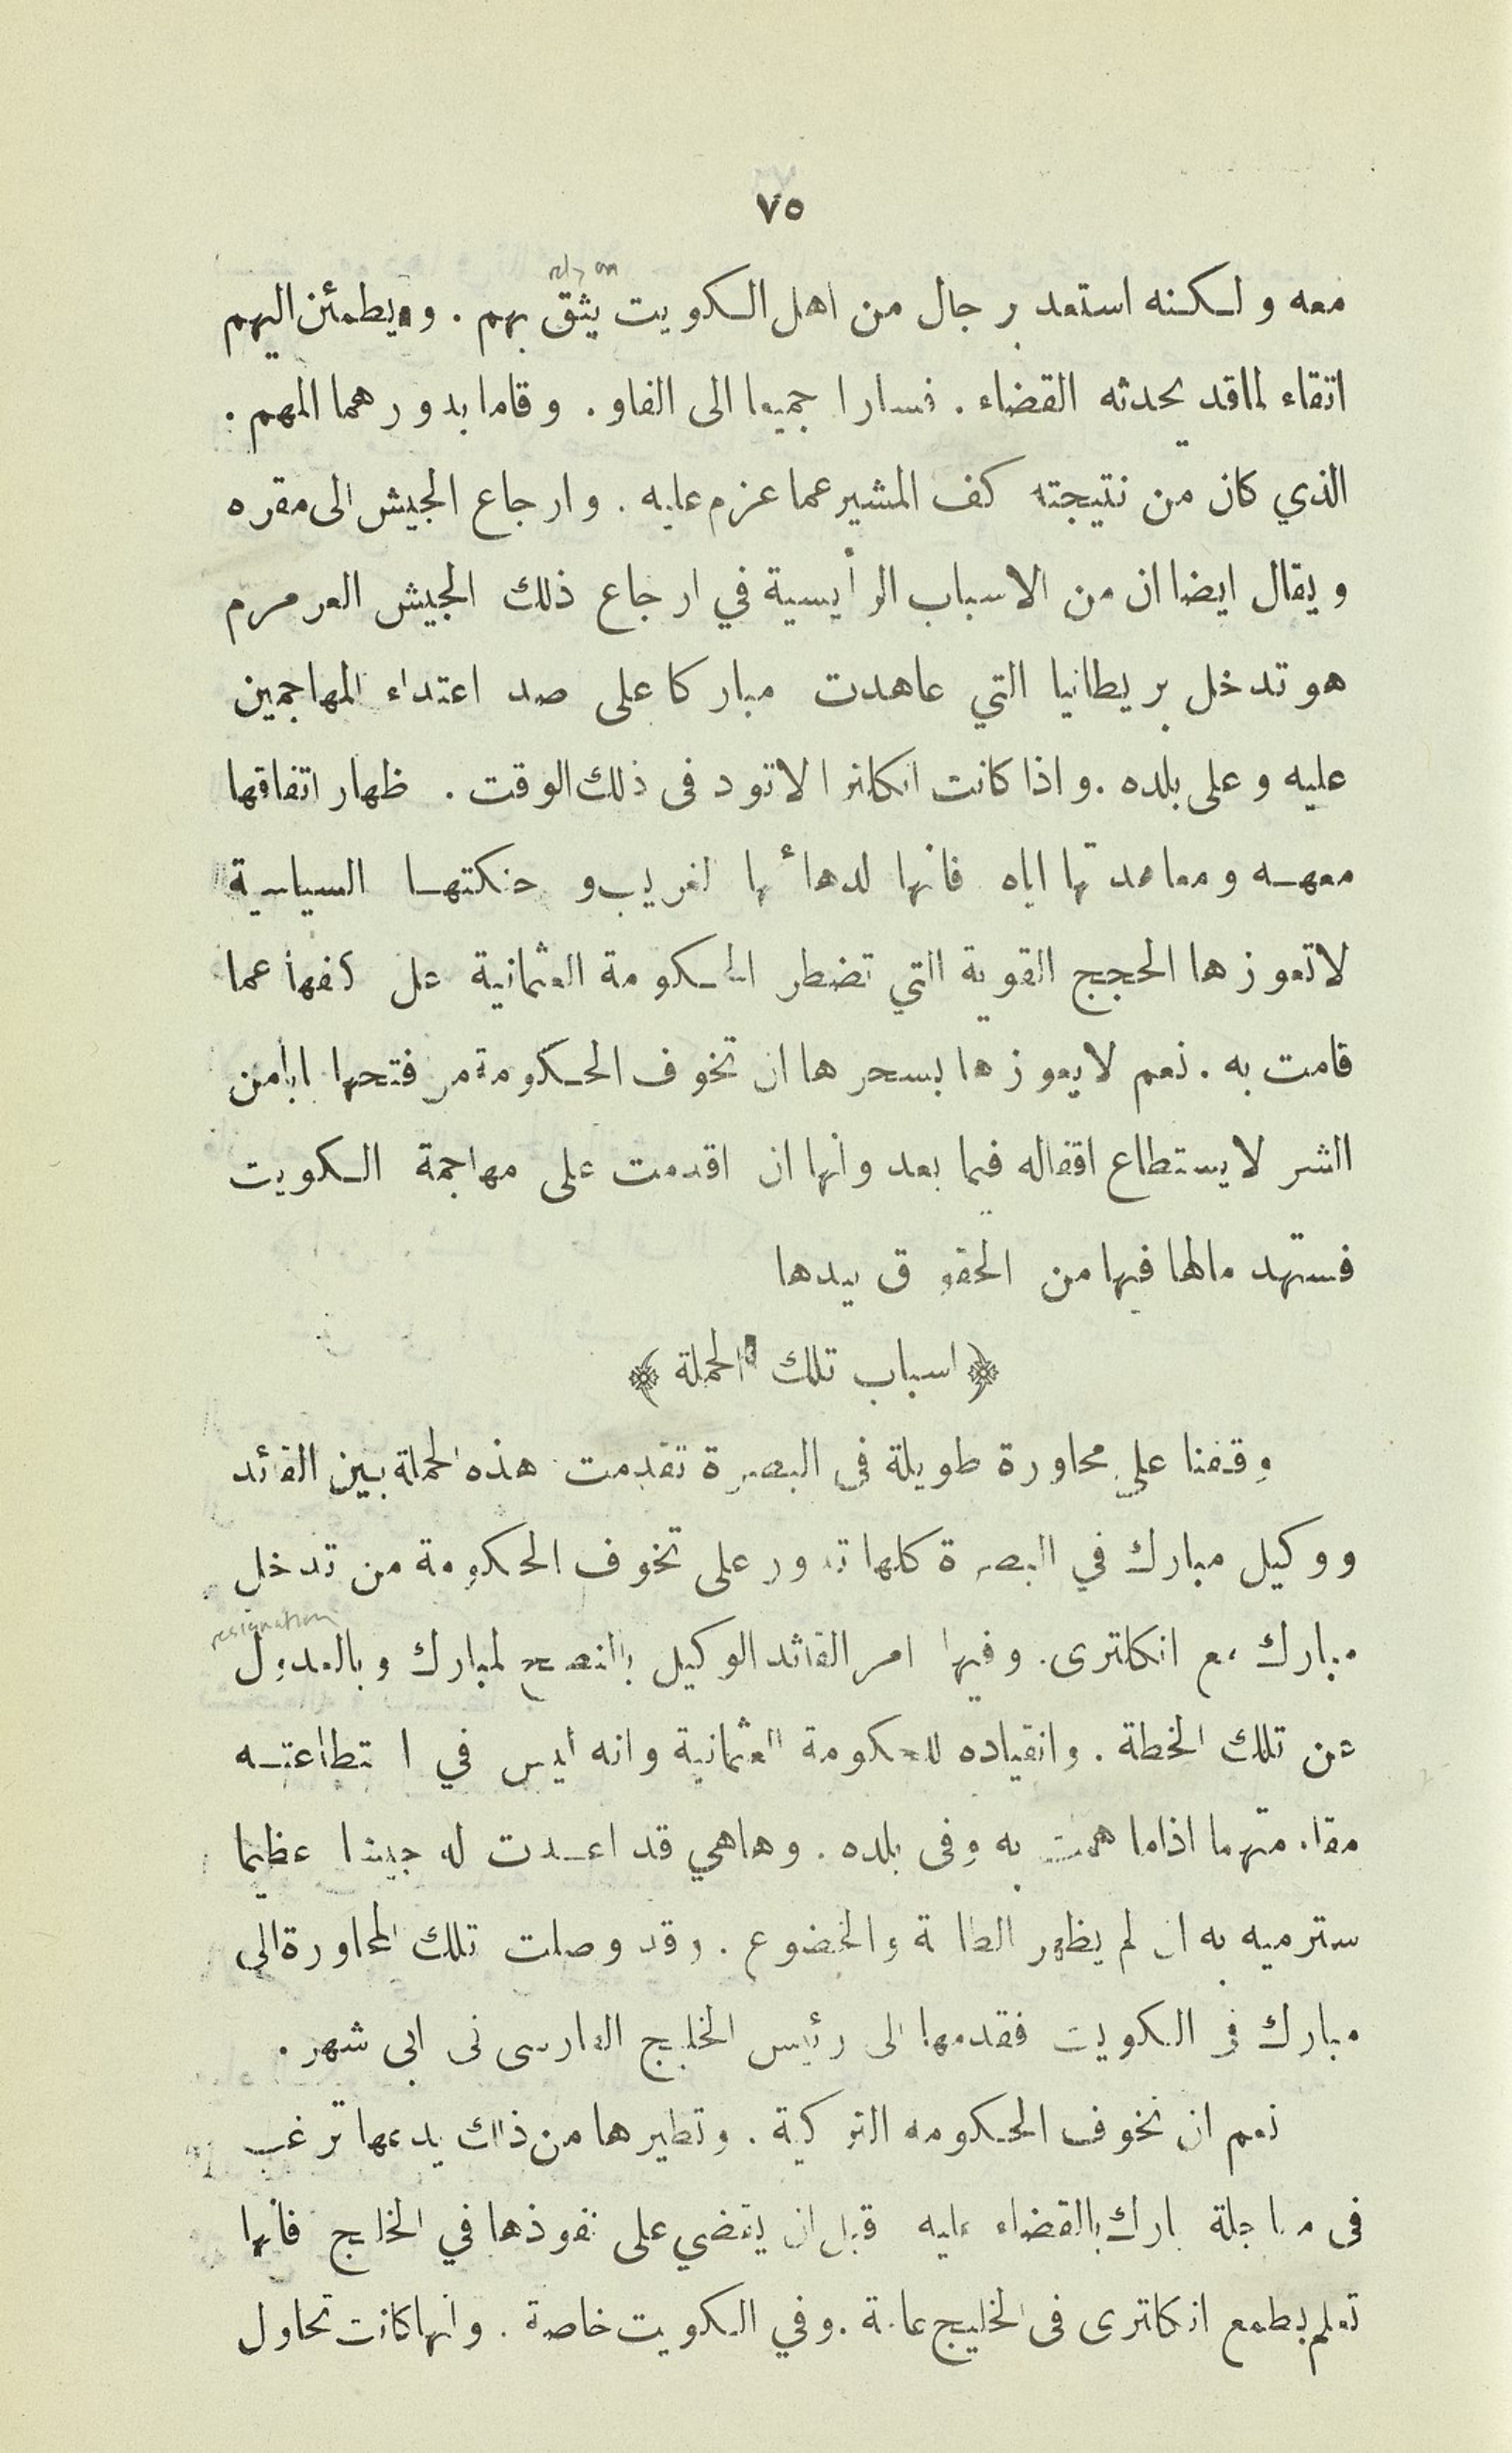 ٧٥
rely on
معه ولكنه استعد برجال من اهل الكويت يثق بهم . ويطمئن اليهم
اتقاء لما قد يحدثه القضاء . فسارا جميعا الى الفاو . وقاما بدورهما المهم .
الذي كان من نتيجته كف المشير عما عزم عليه . وارجاع الجيش الى مقره
ويقال ايضا ان من الاسباب الرأيسية في ارجاع ذلك الجيش العرمرم
هو تدخل بريطانيا التي عاهدت مباركا على صد اعتداء المهاجمين
عليه وعلى بلده . واذا كانت انكلترا لا تود فى ذلك الوقت . ظهار اتفاقها
معهه ومعاهدتها اياه فانها لدهائها لغريب و حنكتها السياسية
لا تعوزها الحجج القوية التي تضطر الحكومة العثمانية على كفها عما
قامت به . نعم لا يعوزها بسحرها ان تخوف الحكومة من فتحها بابا من
الشر لا يستطاع اقفاله فيما بعد وانها ان اقدمت على مهاجمة الكويت
فستهد مالها فيها من الحقوق بيدها
﴿ اسباب تلك الحملة ﴾
وقفنا على محاورة طويلة فى البصرة تقدمت هذه الحملة بين القائد
ووكيل مبارك في البصرة كلها تدور على تخوف الحكومة من تدخل
resignation
مبارك مع انكلترى . وفيها امر القائد الوكيل بالنصح لمبارك وبالعدول
عن تلك الخطة . وانقياده للحكومة العثمانية وانه ليس في ا تطاعته
مقاومتهما اذاما همت به وفى بلده . وهاهي قد اعدت له جيشا عظيما
سترميه به ان لم يظهر الطا ة والخضوع . وقد وصلت تلك المحاورة الى
مبارك فى الكويت فقدمها الى رئيس الخليج الفارسى فى ابى شهر .
نعم ان تخوف الحكومه التركية . وتطيرها من ذلك يدعها ترغب
فى معاجلة بارك بالقضاء عليه قبل ان يقضي على نفوذها في الخليج فانها
تعلم بطمع انكلترى فى الخليج عامة . وفي الكويت خاصة . وانها كانت تحاول